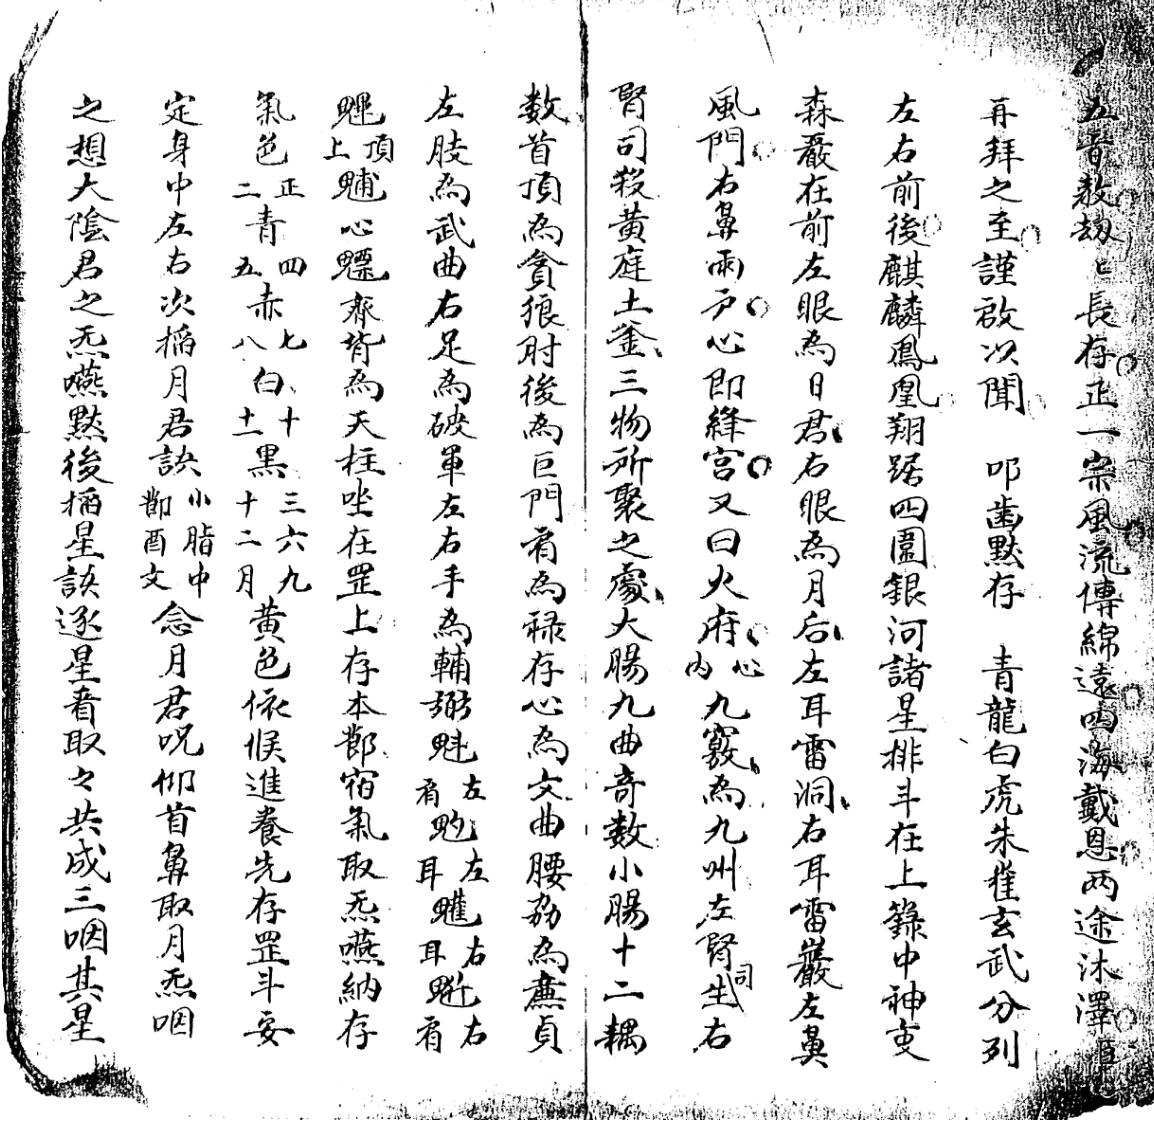 五音数劫〻長存正一宗風流傳綿遠四海戴恩两途沐澤臣
再拜之至謹啟以聞　叩齒默存　青龍白虎朱雀玄武分列
左右前後麒麟鳳凰翔踞四圍銀河諸星排斗在上籙中神吏
森嚴在前左眼為日君右眼為月后左耳雷洞右耳雷巖左鼻
風門右鼻雨户心即絳宫又曰火府心内九竅為九州左腎司生右
腎司殺黃庭土釜三物所聚之處大腸九曲奇数小腸十二耦
数首頂為貪狼肘後為巨門肩為禄存心為文曲腰肋為廉貞
左肢為武曲右足為破軍左右手為輔弼魁左肩䰢左耳魓右耳魒右肩
魓頂上魑心魒齊背為天柱坐在罡上存本鄷宿氣取炁嚥納存
氣色正二青四五赤七八白十十一黑三六九十二月黃色依候進養先存罡斗安
定身中左右次搯月君訣小脂中鄷酉文念月君呪仰首鼻取月炁咽
之想大陰君之炁嚥默後搯星訣逐星看取々共成三咽其星